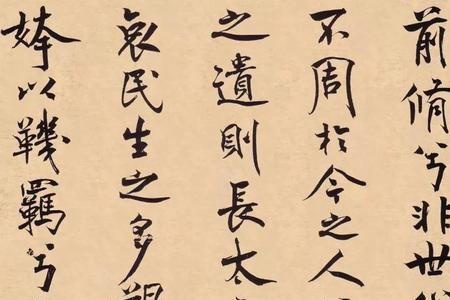 前脩兮非世
不周於今之人
之遺則長太
哀民生之多
姱以鞿羈兮